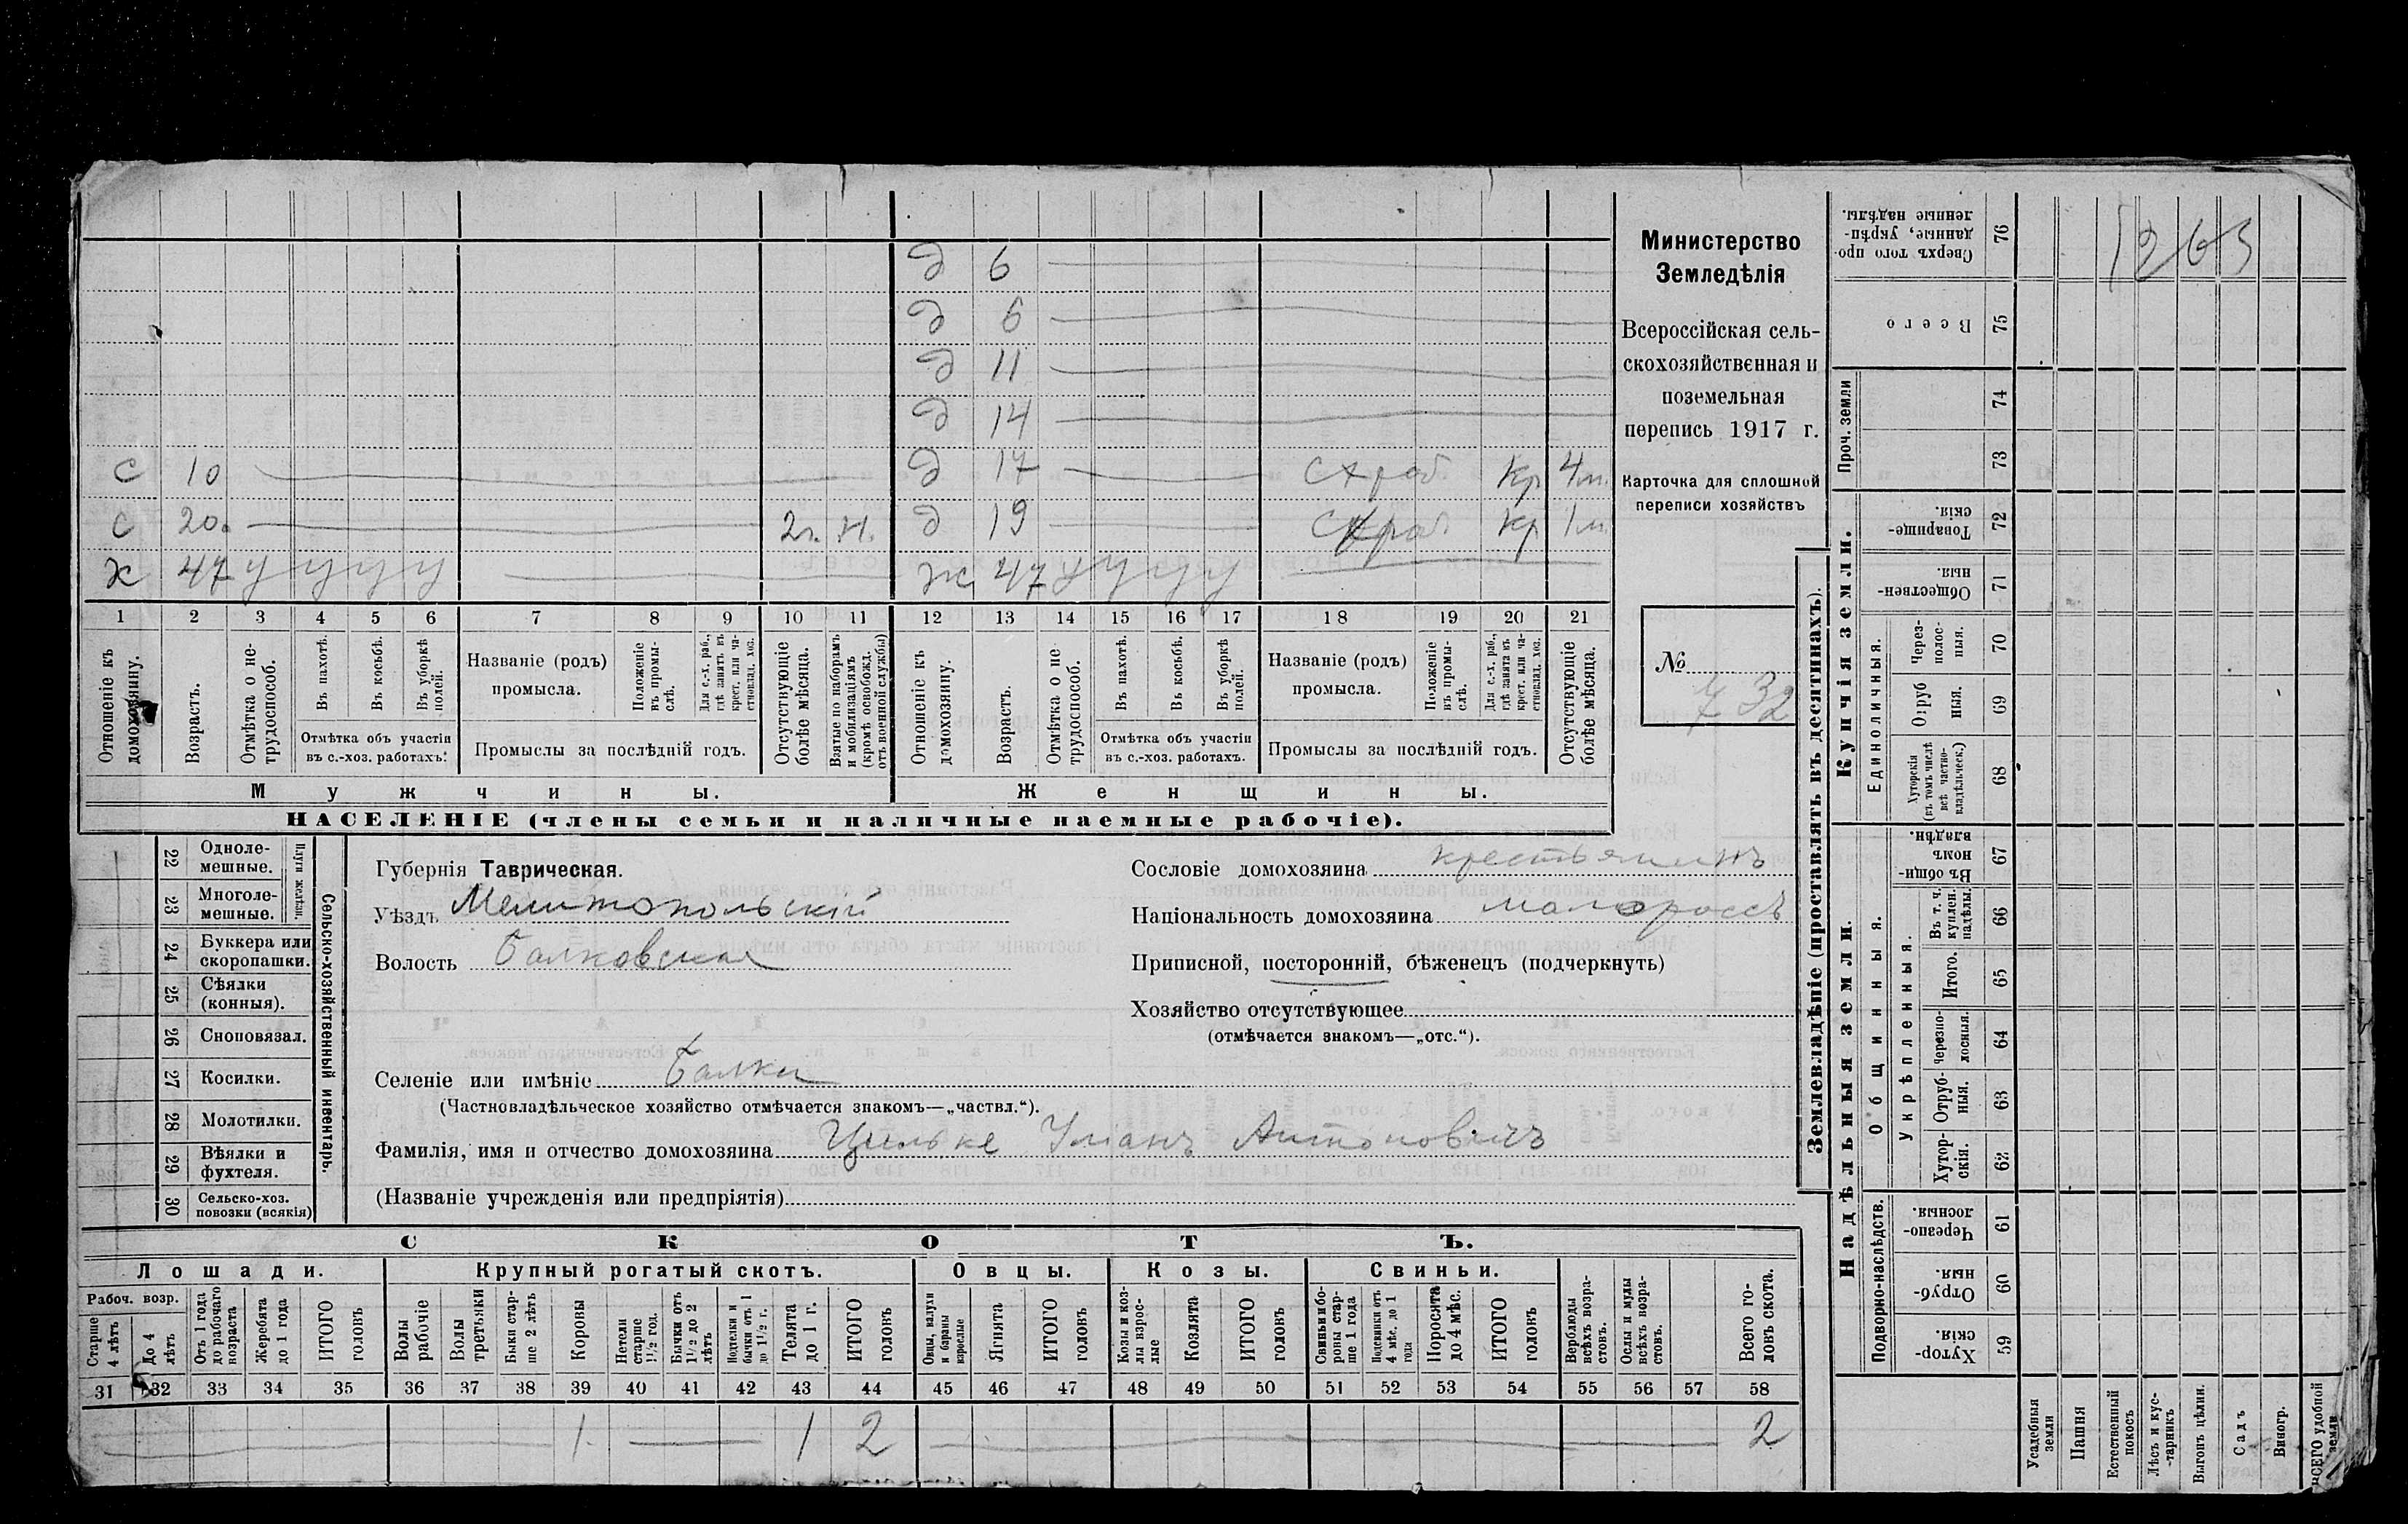 Министерство
Земледѣлія
Всероссійская сель-
скохозяйственная и
поземельная
перепись 1917 г.
Карточка для сплошной
переписи хозяйствъ
№ 732
д 6
д 6
д 11
д 14
с 10 д 17 Кр 4 м.
с 20 2 г. н. д 19 Кр 1 м
х 47 у у у у ж 47 у у у у
1 2 3 4 5 6 7 8 9 10 11 12 13 14 15 16 17 18 19 20 21
Отношеніе къ домохозяину.
Возрастъ.
Отмѣтка о не-трудоспособ.
Въ пахотѣ.
Въ косьбѣ.
Въ уборкѣ полей.
Отмѣтка объ участіи
въ с.-хоз. работахъ.
Названіе (родъ)
промысла.
Положеніе въ промы-слѣ.
Для с.-х. раб., гдѣ занятъ въ крест. или ча-стновлад. хоз.
Промыслы за послѣдній годъ.
Отсутствующіе болѣе мѣсяца.
Взятые по наборамъ и мобилизаціямъ (кромѣ освобожд. отъ военной службы)
Отношеніе къ домохозяину.
Возрастъ.
Отмѣтка о не-трудоспособ.
Въ пахотѣ.
Въ косьбѣ.
Въ уборкѣ полей.
Отмѣтка объ участіи
въ с.-хоз. работахъ.
Названіе (родъ)
промысла.
Положеніе въ промы-слѣ.
Для с.-х. раб., гдѣ занята въ крест. или ча-стновлад. хоз.
Промыслы за послѣдній годъ.
Отсутствующіе болѣе мѣсяца.
Мужчины. Женщины.
НАСЕЛЕНІЕ (члены семьи и наличные наемные рабочіе).
22 Одноле-мешные.
23 Многоле-мешные.
Плуги желѣзн.
24 Буккера или скоропашки.
25 Сѣялки (конныя).
26 Сноповязал.
27 Косилки.
28 Молотилки.
29 Вѣялки и фухтеля.
30 Сельско-хоз. повозки (всякія)
Сельско-хозяйственный инвентарь.
Губернія Таврическая.
Уѣздъ Мелитопольскій
Волость Балковская
Селеніе или имѣніе Балки
(Частновладѣльческое хозяйство отмѣчается знакомъ—„частвл.“).
Фамилія, имя и отчество домохозяина Цильке Уліанъ Антоновичъ
(Названіе учрежденія или предпріятія)
Сословіе домохозяина крестьянинъ
Національность домохозяина малороссъ
Приписной, посторонній, бѣженецъ (подчеркнуть)
Хозяйство отсутствующее
(отмѣчается знакомъ—„отс.“).
СКОТЪ.
Лошади. Крупный рогатый скотъ. Овцы. Козы. Свиньи.
Рабоч. возр.
Старше 4 лѣтъ
До 4 лѣтъ
Отъ 1 года до рабочаго возраста
Жеребята до 1 года
ИТОГО головъ
Волы рабочіе
Волы третьяки
Быки стар-ше 2 лѣтъ
Коровы
Нетели старше 1½ год.
Бычки отъ 1½ до 2 лѣтъ
Подтелки и бычки отъ 1 до 1½ г.
Телята до 1 г.
ИТОГО головъ
Овцы, валухи и бараны взрослые
Ягнята
ИТОГО головъ
Козы и коз-лы взрос-лые
Козлята
ИТОГО головъ
Свиньи и бо-ровы стар-ше 1 года
Подсвинки отъ 4 мѣс. до 1 года
Поросята до 4 мѣс.
ИТОГО головъ
Верблюды всѣхъ возра-стовъ.
Ослы и мулы всѣхъ возра-стовъ.
Всего го-ловъ скота.
31 32 33 34 35 36 37 38 39 40 41 42 43 44 45 46 47 48 49 50 51 52 53 54 55 56 57 58
1 1 2 2
Землевладѣніе (проставлять въ десятинахъ).
Купчія земли.
Надѣльныя земли.
Сверхъ того про-данные, укрѣп-ленные надѣлы. 76
Всего 75
Проч. земли 74 73
Товарище-скія. 72
Обществен-ныя. 71
Единоличныя.
Через-полос-ныя. 70
Отруб ныя. 69
Хуторскія (въ томъ числѣ всѣ частно-владѣльческ.) 68
Общинныя.
Въ общи-номъ владѣн. 67
Укрѣпленныя.
Въ т. ч. куплен. надѣлы. 66
Итого. 65
Черезпо-лосныя. 64
Отруб-ныя. 63
Хутор-скія. 62
Подворно-наслѣдств.
Черезпо-лосныя. 61
Отруб-ныя. 60
Хутор-скія. 59
Усадебныя земли
Пашня
Естественный покосъ
Лѣсъ и кус-тарникъ
Выгонъ цѣлин.
Садъ
Виногр.
ВСЕГО удобной земли
1263